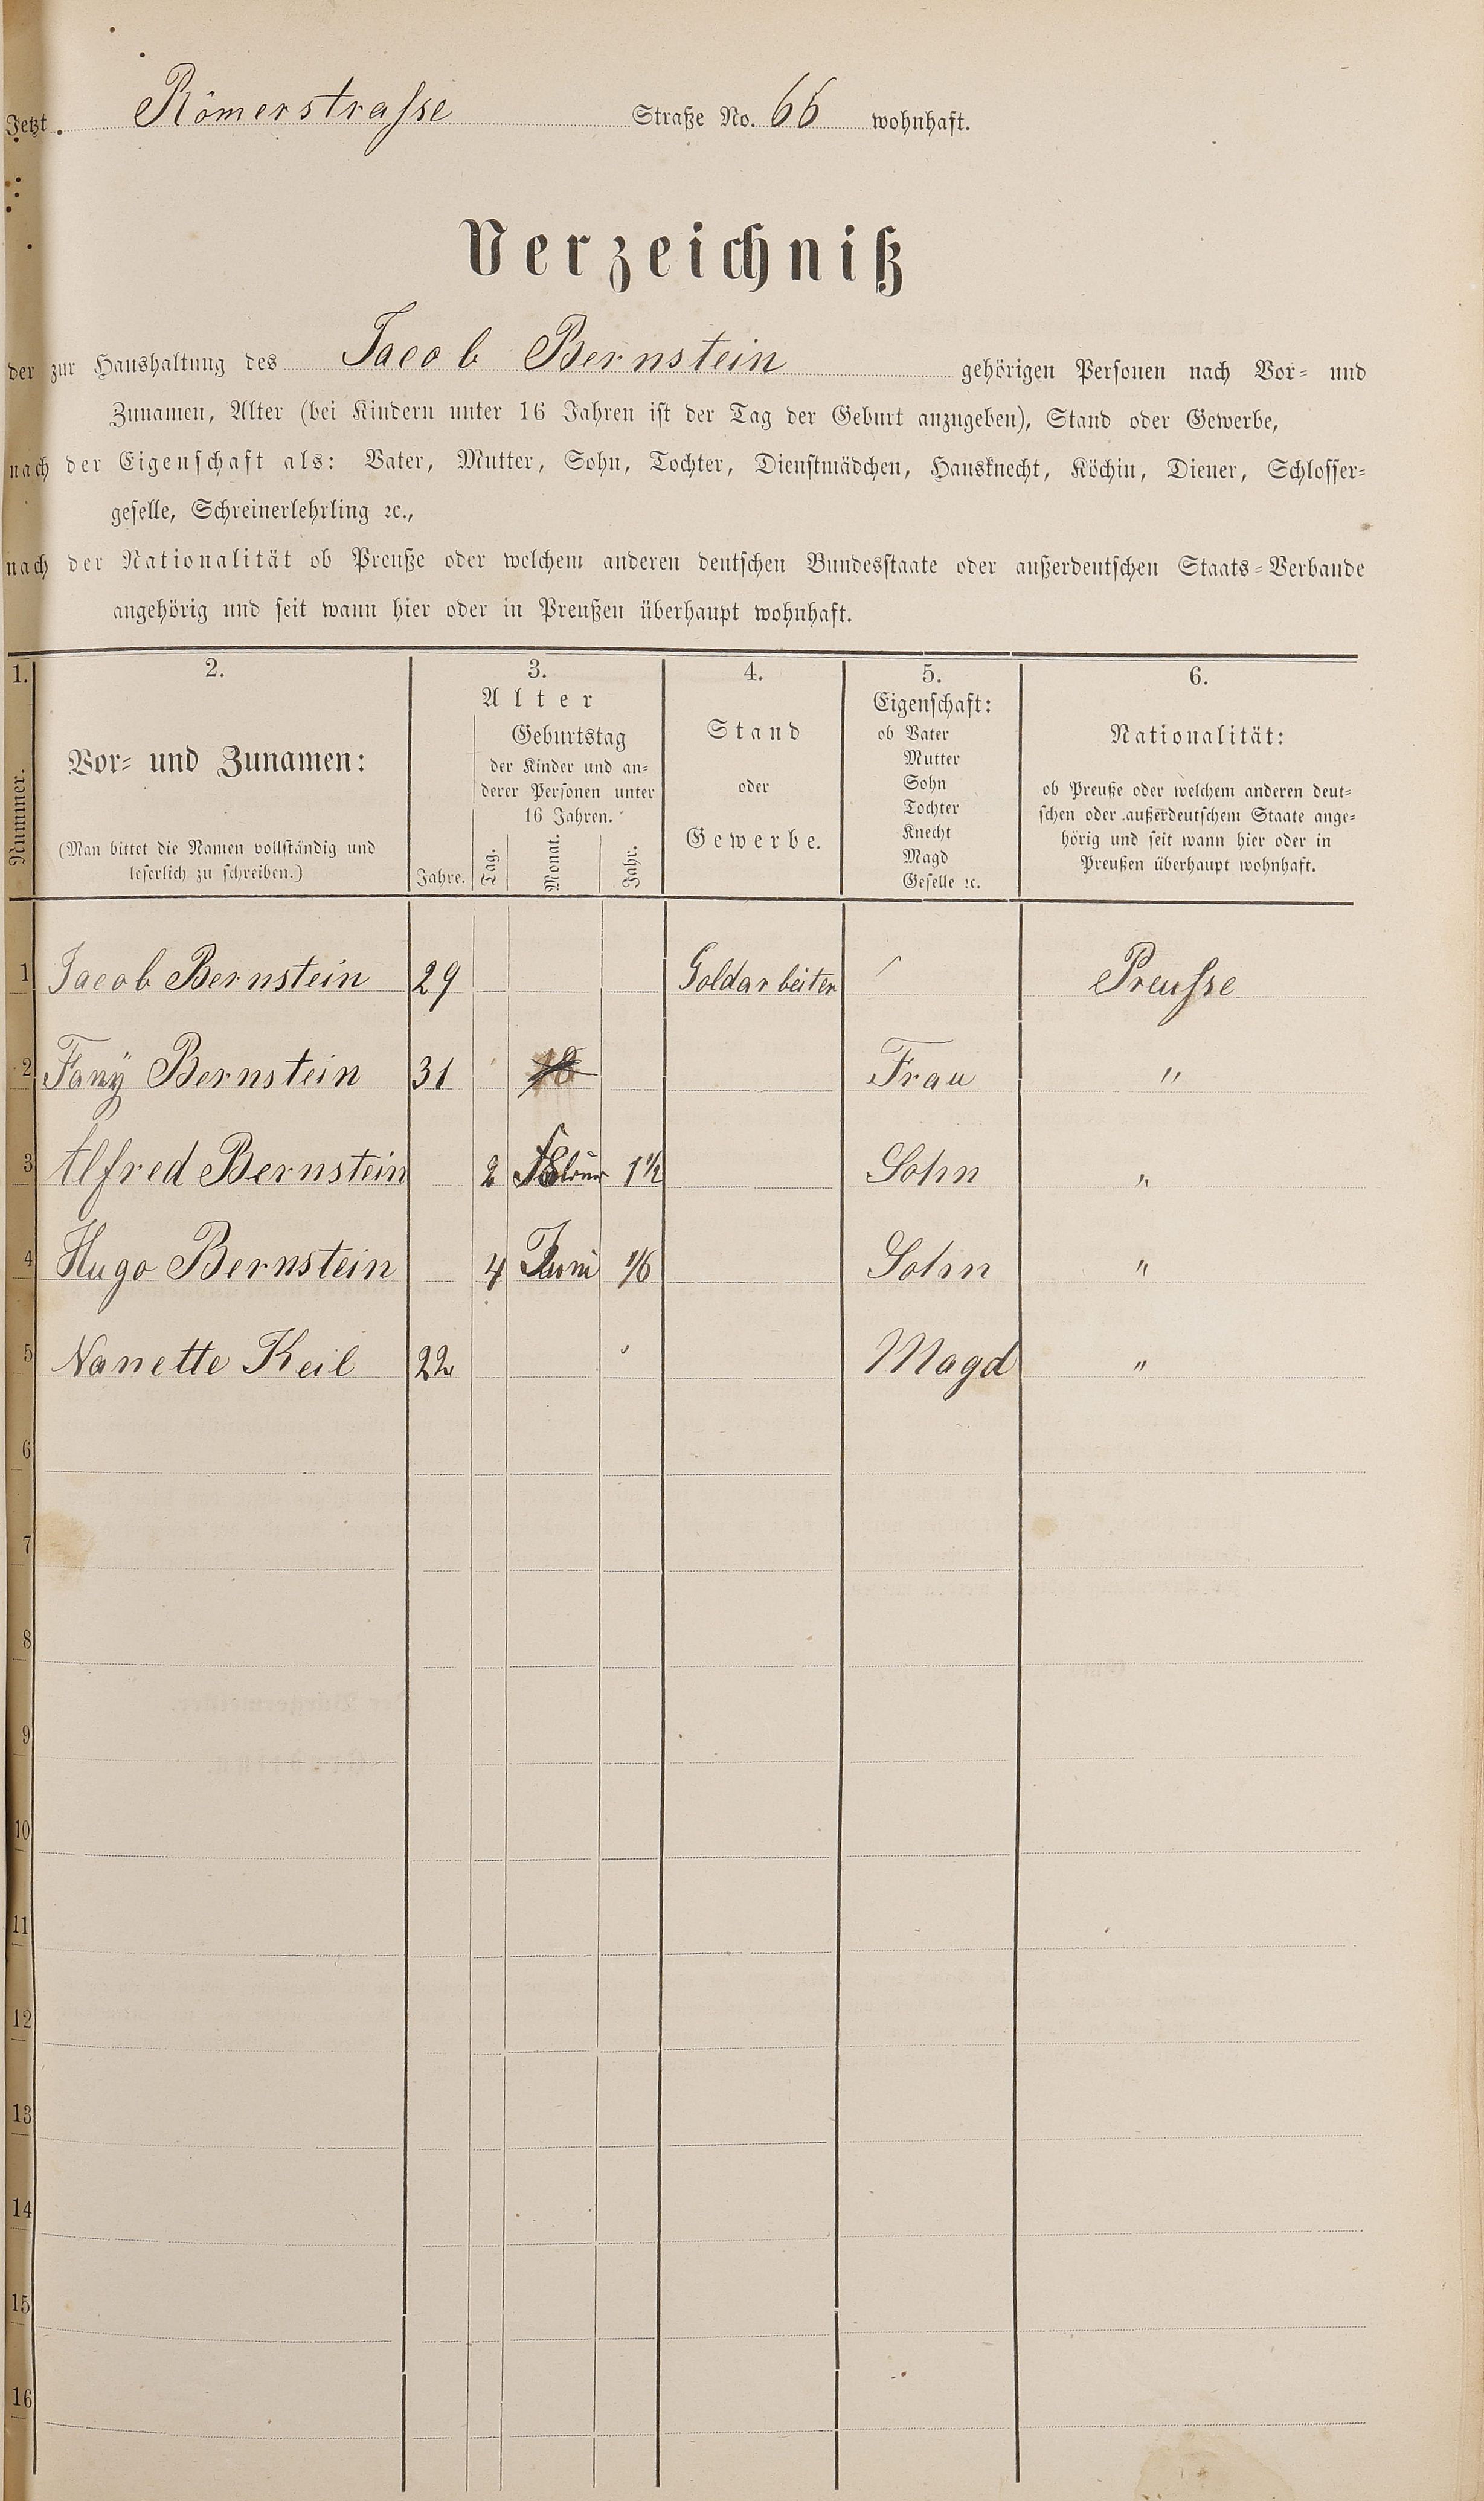 Jetzt Römerstrasse Straße No. 66 wohnhaft.
Verzeichniß
der zur Haushaltung des Jacob Bernstein gehörigen Personen nach Vor- und
Zunamen, Alter (bei Kindern unter 16 Jahren ist der Tag der Geburt anzugeben), Stand oder Gewerbe,
nach der Eigenschaft als: Vater, Mutter, Sohn, Tochter, Dienstmädchen, Hausknecht, Köchin, Diener, Schlosser-
geselle, Schreinerlehrling ꝛc.,
nach der Nationalität ob Preuße oder welchem anderen deutschen Bundesstaate oder außerdeutschen Staats-Verbande
angehörig und seit wann hier oder in Preußen überhaupt wohnhaft.
1.
Nummer.
2.
Vor- und Zunamen:
(Man bittet die Namen vollständig und
leserlich zu schreiben.)
3.
Alter
Jahre.
Geburtstag
der Kinder und an-
derer Personen unter
16 Jahren.
Tag.
Monat.
Jahr.
4.
Stand
oder
Gewerbe.
5.
Eigenschaft:
ob Vater
Mutter
Sohn
Tochter
Knecht
Magd
Geselle ꝛc.
6.
Nationalität:
ob Preuße oder welchem anderen deut-
schen oder außerdeutschem Staate ange-
hörig und seit wann hier oder in
Preußen überhaupt wohnhaft.
1 Jacob Bernstein 29 Goldarbeiter Preusse
2 Fany Bernstein 31 Frau "
3 Alfred Bernstein 2 1½ Sohn "
4 Hugo Bernstein 4 Juni 1/6 Sohn "
5 Nanette Keil 22 Magd "
6
7
8
9
10
11
12
13
14
15
16